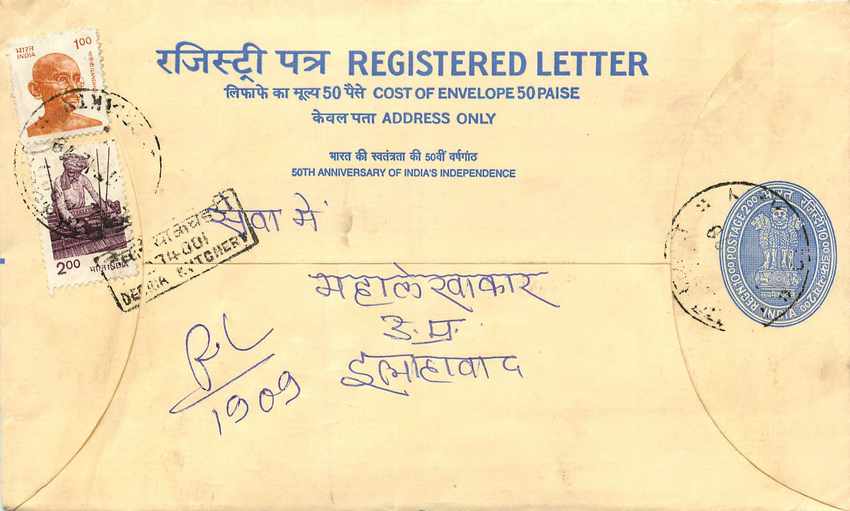 रजिस्ट्री पत्र REGISTERED LETTER
लिफाफे का मूल्य 50 पैसे COST OF ENVELOPE 50 PAISE
केवल पता ADDRESS ONLY
भारत की स्वतंत्रता की 50वीं वर्षगांठ
50TH ANNIVERSARY OF INDIA'S INDEPENDENCE
भारत
INDIA
1.00
2.00
भारत INDIA
74001
DEORIA KUTCHERY
सेवा में
महालेखाकार
उ.प्र.
इलाहाबाद
RL
1909
भारत
INDIA
REGN 10.00 POSTAGE 2.00